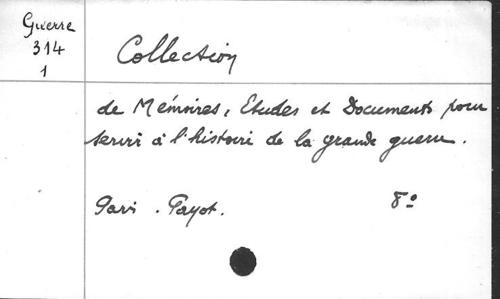 Guerre
314
1
Collection
de Mémoires, Etudes et Documents pour
servir à l'histoire de la grande guerre.
Paris. Payot.
8º